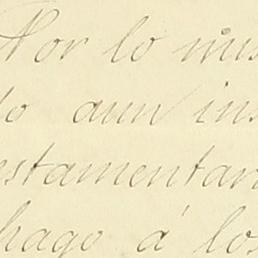 Por lo mis
do aun ins
estamentar
hago á los